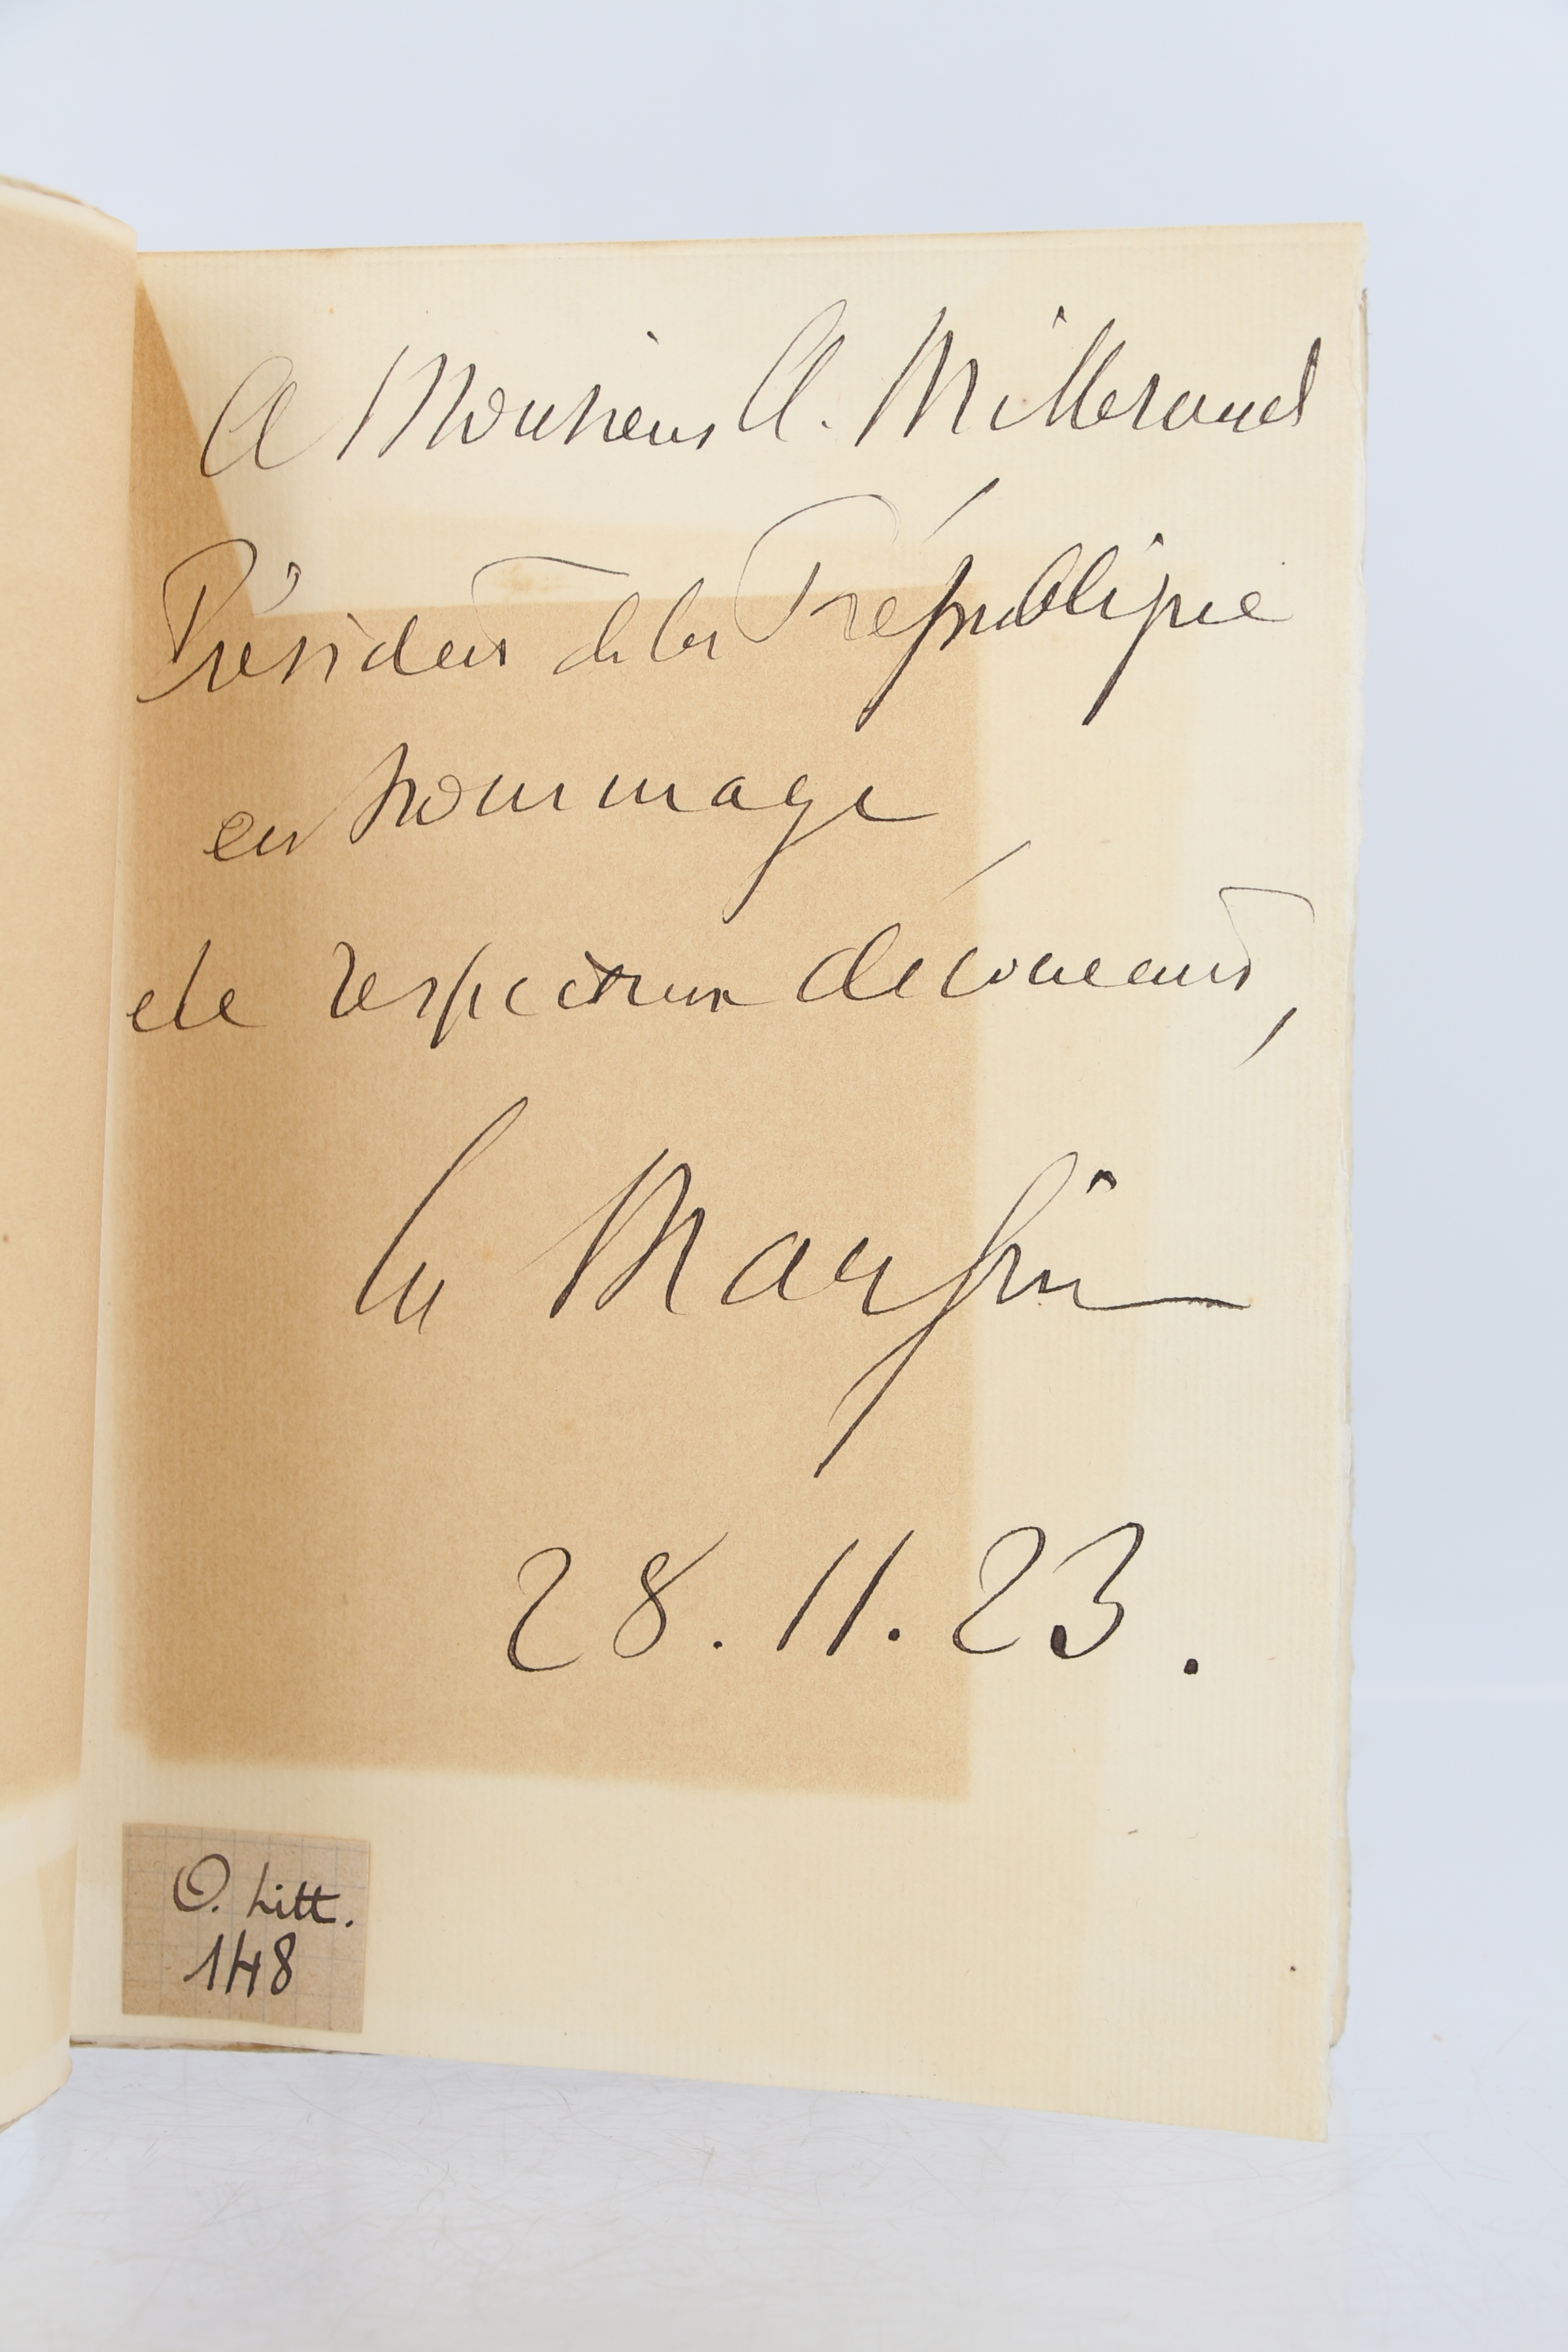 A Monsieur A. Millerand
Président de la République
en hommage
de respectueux dévouement,
Ch Maurras
28.11.23.
O. Litt.
148